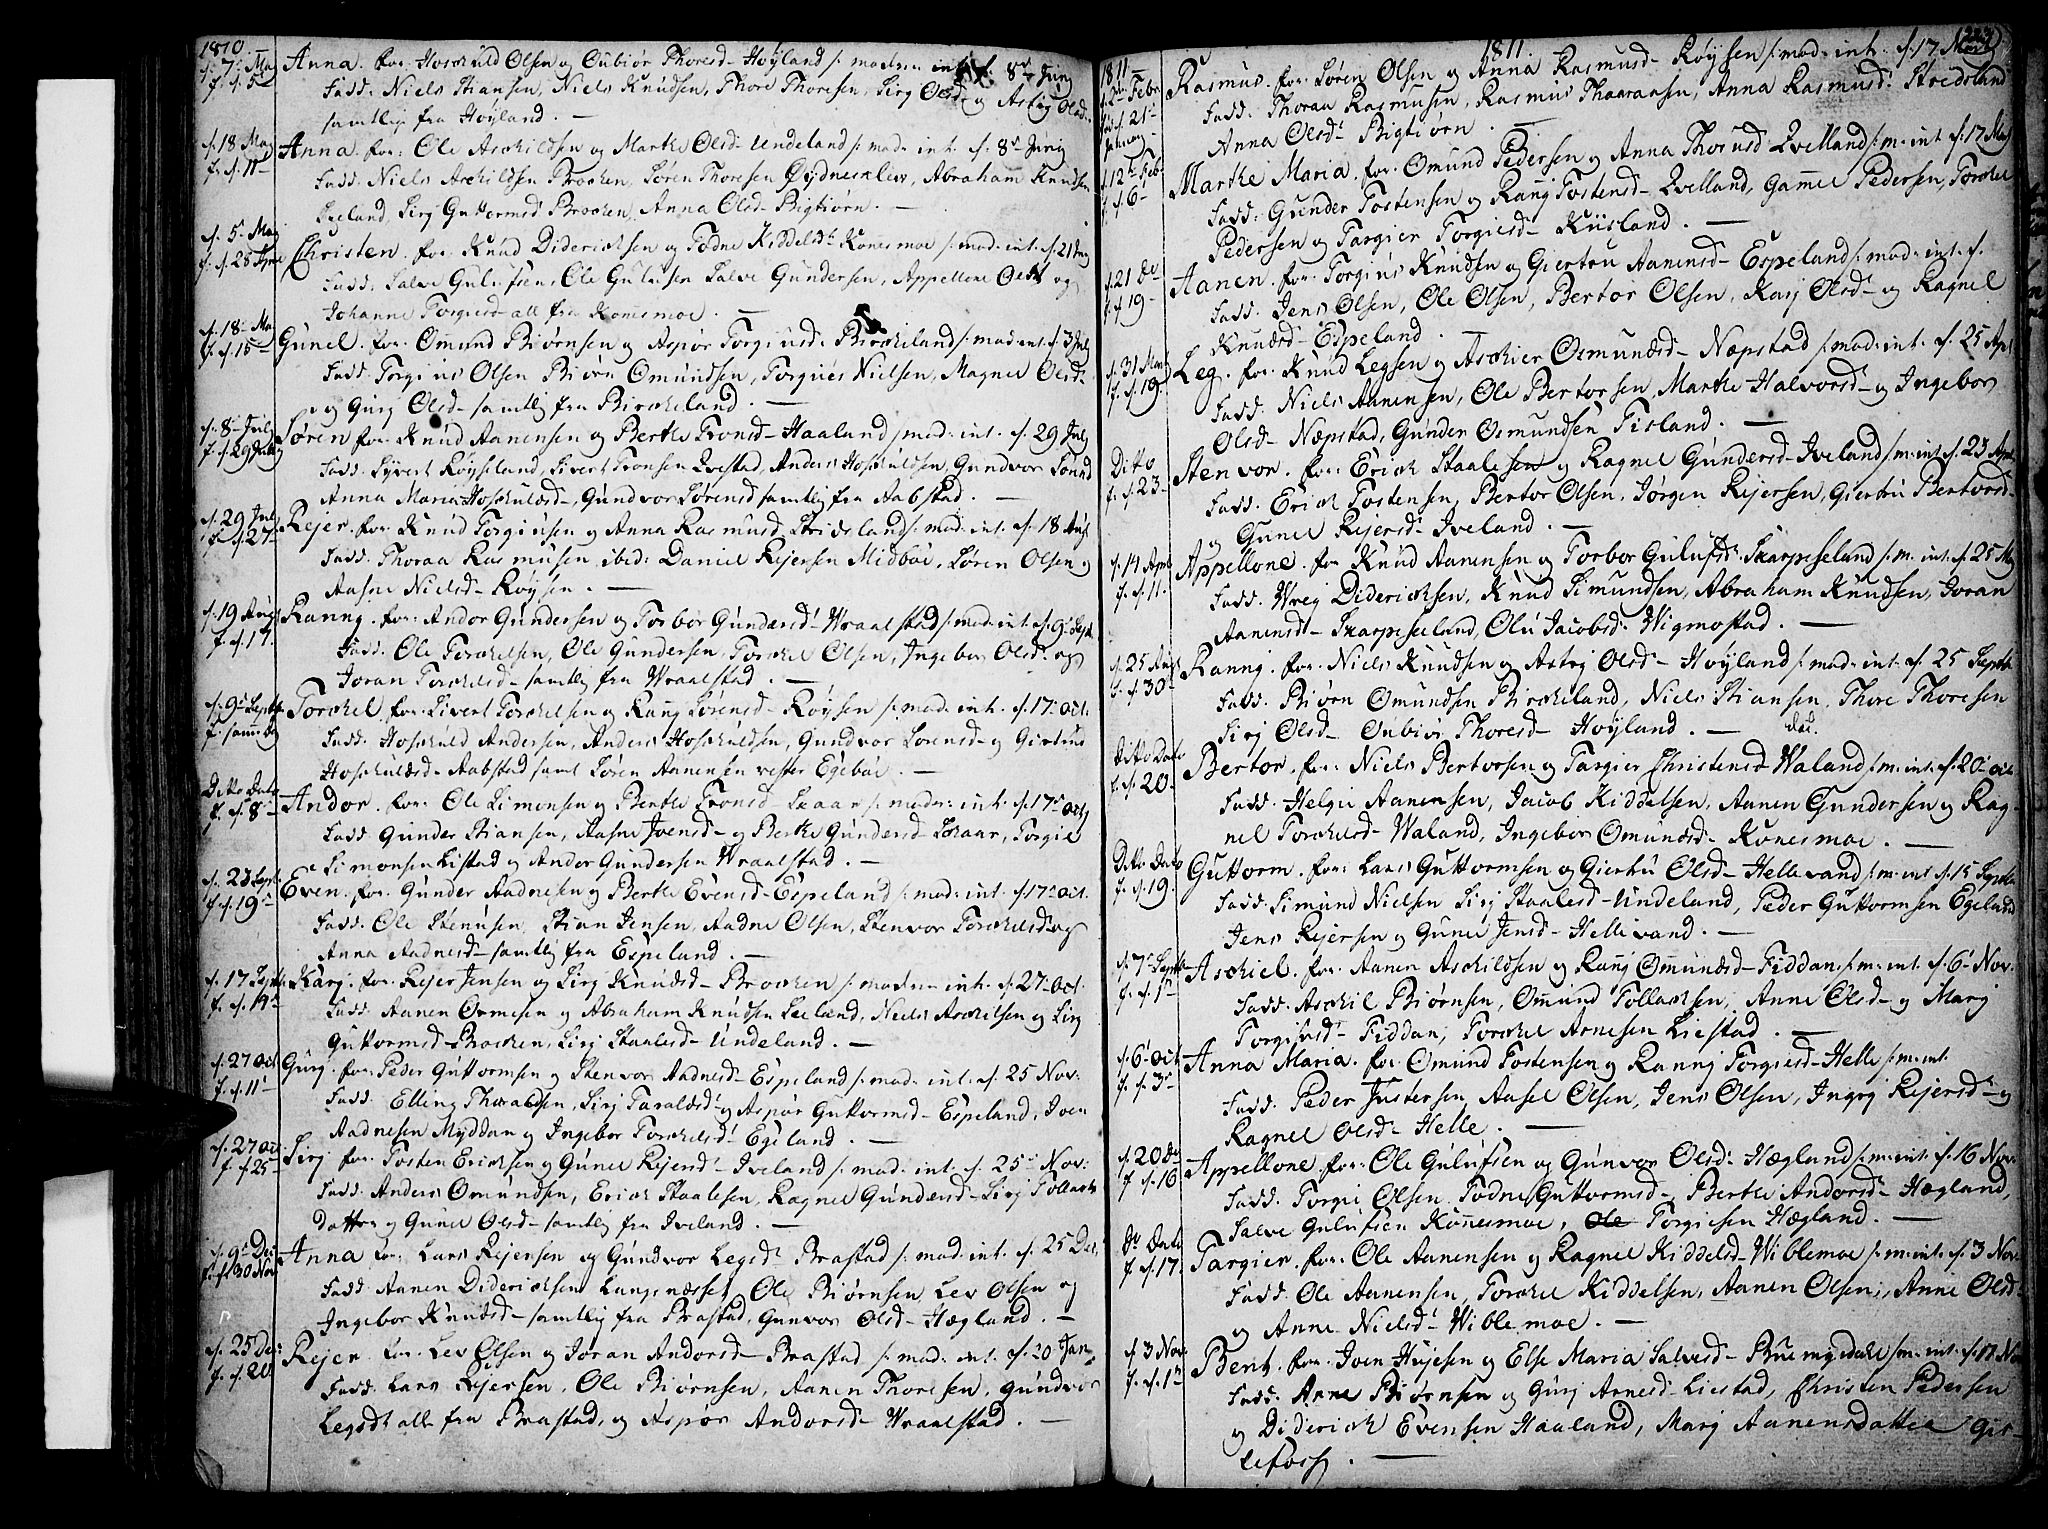 1810.
d. 7 Maj Anna. for: Hoskuld Olsen og Oubiør Thoresd- Høyland /: mod: int. d. 8de Junj
f. d. 5te Fadd: Niels Stiansen, Niels Knudsen, Thore Thoresen, Sirj Olsd- og Astrig Olsd-
samtlig fra Høyland. —
d. 18 Maj Anna. for: Ole Aschildsen og Marthe Olsd- Undeland /: mod: int. d. 8de Junj
f. d. 11te Fadd: Niels Aschildsen Brochen, Søren Thoresen Øydneskleiv, Abraham Knudsen
Leeland, Sirj Guttormsd Brochen, Anna Olsd- Bigtiørn. —
d. 5 Maj Christen. for: Knud Diderichsen og Todne Kiddelsd- Konesmoe /: mod: int. d. 21 Junj
f. d. 28 Apr Fadd: Salve Gulufsen, Ole Gulufsen Salve Gundersen, Appellone Olsd og
Johanne Torgiesd- all fra Konesmoe. —
d. 18 Maj Gunel. for: Omund Biørnsen og Aspør Torgiusd- Birkeland /: mod: int. d. 3 Julj
f. d. 15 Fadd: Torgius Olsen Biørn Omundsen, Torgues Nielsen, Magnel Olsd-
og Gurj Olsd- samtlig fra Birkeland. —
d. 8 Julj Søren for: Knud Aanensen og Berthe Tronsd- Haaland /: mod: int. d. 29 Julj
f. d. 29 Junj Fadd: Syvert Røyseland, Sivert Tronsen Qvestad, Anders Hoskuldsen, Gundvor
Anna Maria Hoskuldsd-, Gundvor Sørensd samtlig fra Aabstad. —
d. 29 Julj Rejer. for: Knud Torgiusen og Anna Rasmusd Stridsland /: mod: int. d. 18 Aug
f. d. 27 Fadd: Thoraa Rasmusen ibid: Daniel Rejersen Midboe, Søren Olsen og
Aasne Nielsd- Røysen. —
d. 19 Aug Ranng. for: Andor Gundersen og Torbor Gundersd- Wraalstad /: mod: int. d. 9 Sept
f. d. 17. Fadd: Ole Torchelsen, Ole Gundersen, Torchel Olsen, Ingebor Olsd- og
Joran Torchelsd- samtlig fra Wraalstad. —
d. 9 Sept Torchel for: Sivert Torchelsen og Rang Sørensd- Røysen /: mod: int. d. 17 Oct.
f. samme dag Fadd: Hoskuld Andersen, Anders Hoskuldsen, Gundvor Sorensd- og Giertrud
Hoskuldsd- Aabstad samt Søren Aanensen vester Egeboe. —
Ditto Dato Andor. for: Ole Simonsen og Berthe Tronsd- Skaar /: mod: int. d. 17 Oct
f. d. 8 Fadd Gunder Stiansen, Aasne Jvensd- og Berthe Gundersd Skaar, Torgie
Simonsen Listad og Andor Gundersen Wraalstad. —
d. 23 Sept: Even. for: Gunder Aadnesen og Berthe Evensd- Espeland /: mod: int. d. 17 Oct.
f. d. 19 Fadd. Ole Stenusen, Stian Jensen, Aadne Olsen, Stenvor Torchelsd- og
Anna Aadnesd- samtlig fra Espeland. —
d. 17 Sept: Karj. for: Rejer Jensen og Sirj Knudsd- Brochen /: mod: int. d. 27 Oct.
f. d. 14 Fadd: Aanen Ormesen og Abraham Knudsen Leeland, Niels Aschilsen og Sirj
Guttormsd- Brochen, Sirj Staalesd- Undeland. —
d. 27 Oct Gurj. for: Peder Guttormsen og Stenvor Aadnesd- Espeland /: mod: int. d. 25 Nov:
f. d. 11 Fadd. Elling Thoraldsen, Sirj Taraldsd- og Aspør Guttormsd- Espeland, Joen
Aadnesen Myddan og Ingebor Torchelsd- Egeland. —
d. 27 Oct Sirj for: Tosten Erichsen og Gunel Rejersd- Iveland /: mod: int. d. 25 Nov:
f. d. 25 Fadd. Anders Omundsen, Erich Staalesen, Ragnel Gundersd- Sirj Tollachs
datter og Gunel Olsd- samtlig fra Iveland. —
d. 9 Dec: Anna for: Lars Rejersen og Gundvor Legsd- Brastad /: mod: int. d. 25 Dec,
f. d. 30 Nov Fadd. Aanen Diderichsen Langenesset, Ole Biørnsen, Lev Olsen og
Ingebor Knudsd- samtlig fra Brastad, Gunvor Olsd- Hægland. —
d. 25 Dec: Rejer for: Lev Olsen og Joran Andorsd- Brastad /: mod: int. d. 20 Jan
f. d. 20 Fadd: Lars Rejersen, Ole Biørnsen, Aanen Thoresen, Gundvor
Legsd- alle fra Brastad, og Aspør Andorsd- Wraalstad. —
1811. 223
1811 —
d. 2 Febr Rasmus. for: Søren Olsen og Anna Rasmusd- Røysen /: mod: int. d. 17 Martz
d. 21 Fadd: Thoraa Rasmusen, Rasmus Thaaraasen, Anna Rasmusd: Stridsland
Anna Olsd- Bigtiørn. —
d. 12 Feb. Marthe Maria. for: Omund Pedersen og Anna Thorusd Qvelland /: m: int. d. 17 Maj
f. d. 6 Fadd: Gunder Tostensen og Rang Tostensd- Qvelland, Gamel Pedersen, Torchel
Pedersen og Targier Torgiesd- Kiisland. —
d. 21 Do Aanen. for: Torgius Knudsen og Giertru Aanensd- Espeland /: mod: int. d.
f. d. 19 Fadd: Jens Olsen, Ole Olsen, Bertor Olsen, Karj Olsd- og Ragnel
Knudsd- Espeland. —
d. 31 Mar Leg. for: Knud Legsen og Aschier Osmundsd- Næpstad /: mod: int. d. 25 Apl
f. d. 19. Fadd: Niels Aanensen, Ole Bertorsen, Marthe Halvorsd- og Ingebor
Olsd- Næpstad, Gunder Osmundsen Tisland. —
Ditto Stenvor. for: Erich Staalesen og Ragnel Gundersd- Iveland /: m: int d. 23 Apr
f. d. 23 Fadd: Erich Tostensen, Bertor Olsen, Jørgen Rejersen, Giertru Bertorsd-
og Gunel Rejersd- Iveland. —
d. 14 Apr Appellone. for Knud Aanensen og Torbor Gulufsd- Skarpeseland /: m: int. d. 25 Maj
f. d. 11. Fadd: Wrej Diderichsen, Knud Simundsen, Abraham Knudsen, Joran
Aanensd- Skarpeseland, Olu Jacobsd: Wigmostad. —
d. 25 Aug Rannj. for: Niels Knudsen og Astrj Olsd- Høyland /: mod: int. d. 25 Septbr
f. d. 30 Fadd: Biørn Omundsen Birkeland, Niels Stiansen, Thore Thoresen
Sirj Olsd- Oubiør Thoresd- Høyland. —
Ditto Dato Bertor. for: Niels Bertorsen og Targier Christensd- Waland /: m: int. d. 20 Oct
f. d. 20. Fadd. Helgie Aanensen, Jacob Kiddelsen, Aanen Gundersen og Rag-
nel Torchelsd- Waland, Ingebor Omundsd- Konesmoe. —
Ditto Dato Guttorm. for: Lars Guttormsen og Giertru Olsd- Hellevand /: m: int d. 15 Septbr
f. d. 19. Fadd. Simund Nielsen Sirj Staalesd- Undeland, Peder Guttormsen Egeland
Jens Rejersen og Gunel Jensd- Hellevand. —
d. 7 Septbr Aschiel. for: Aanen Aschildsen og Rannj Omundsd- Fiddan. /: m: int. d. 6 Nov.
f. d. 1te Fadd. Aschil Biørnsen, Omund Tollachsen, Anne Olsd- og Marj
Torgiusd- Fiddan, Torchel Arnesen Liestad. —
d. 6 Oct Anna Maria. for Omund Tostensen og Rannj Torgiesd- Helle /: m: int.
f. d. 3 Fadd. Peder Justersen, Aasel Olsen, Jens Olsen, Ingrj Rejersd- og
Ragnel Olsd- Helle. —
d. 20 Do Appellone. for: Ole Gulufsen og Gunvor Olsd- Hægland /: m: int. d. 16 Nov.
f. d. 16 Fadd. Torgie Olsen, Todne Guttormsd- Berthe Andorsd- Hægland,
Salve Gulufsen Konnesmoe, Ole Torgiesen Hægland. —
Do Dato Targier. for: Ole Aanensen og Ragnel Kiddelsd- Wiblemoe /: m: int. d. 3 Nov.
f. d. 17. Fadd. Ole Aanensen, Torchel Kiddelsen, Aanen Olsen, Anne Olsd-
og Anne Nielsd- Wiblemoe. —
d. 3 Nov. Bent. for: Joen Hujesen og Else Maria Salvesd- Buemyedahl /: m: int. d. 17 Nov
f. d. 1te Fadd. Arne Biørnsen og Gurj Arnesd- Liestad, Christen Pedersen
og Diderich Evensen Haaland, Marj Aanensdatter Gis-
lefoss. —